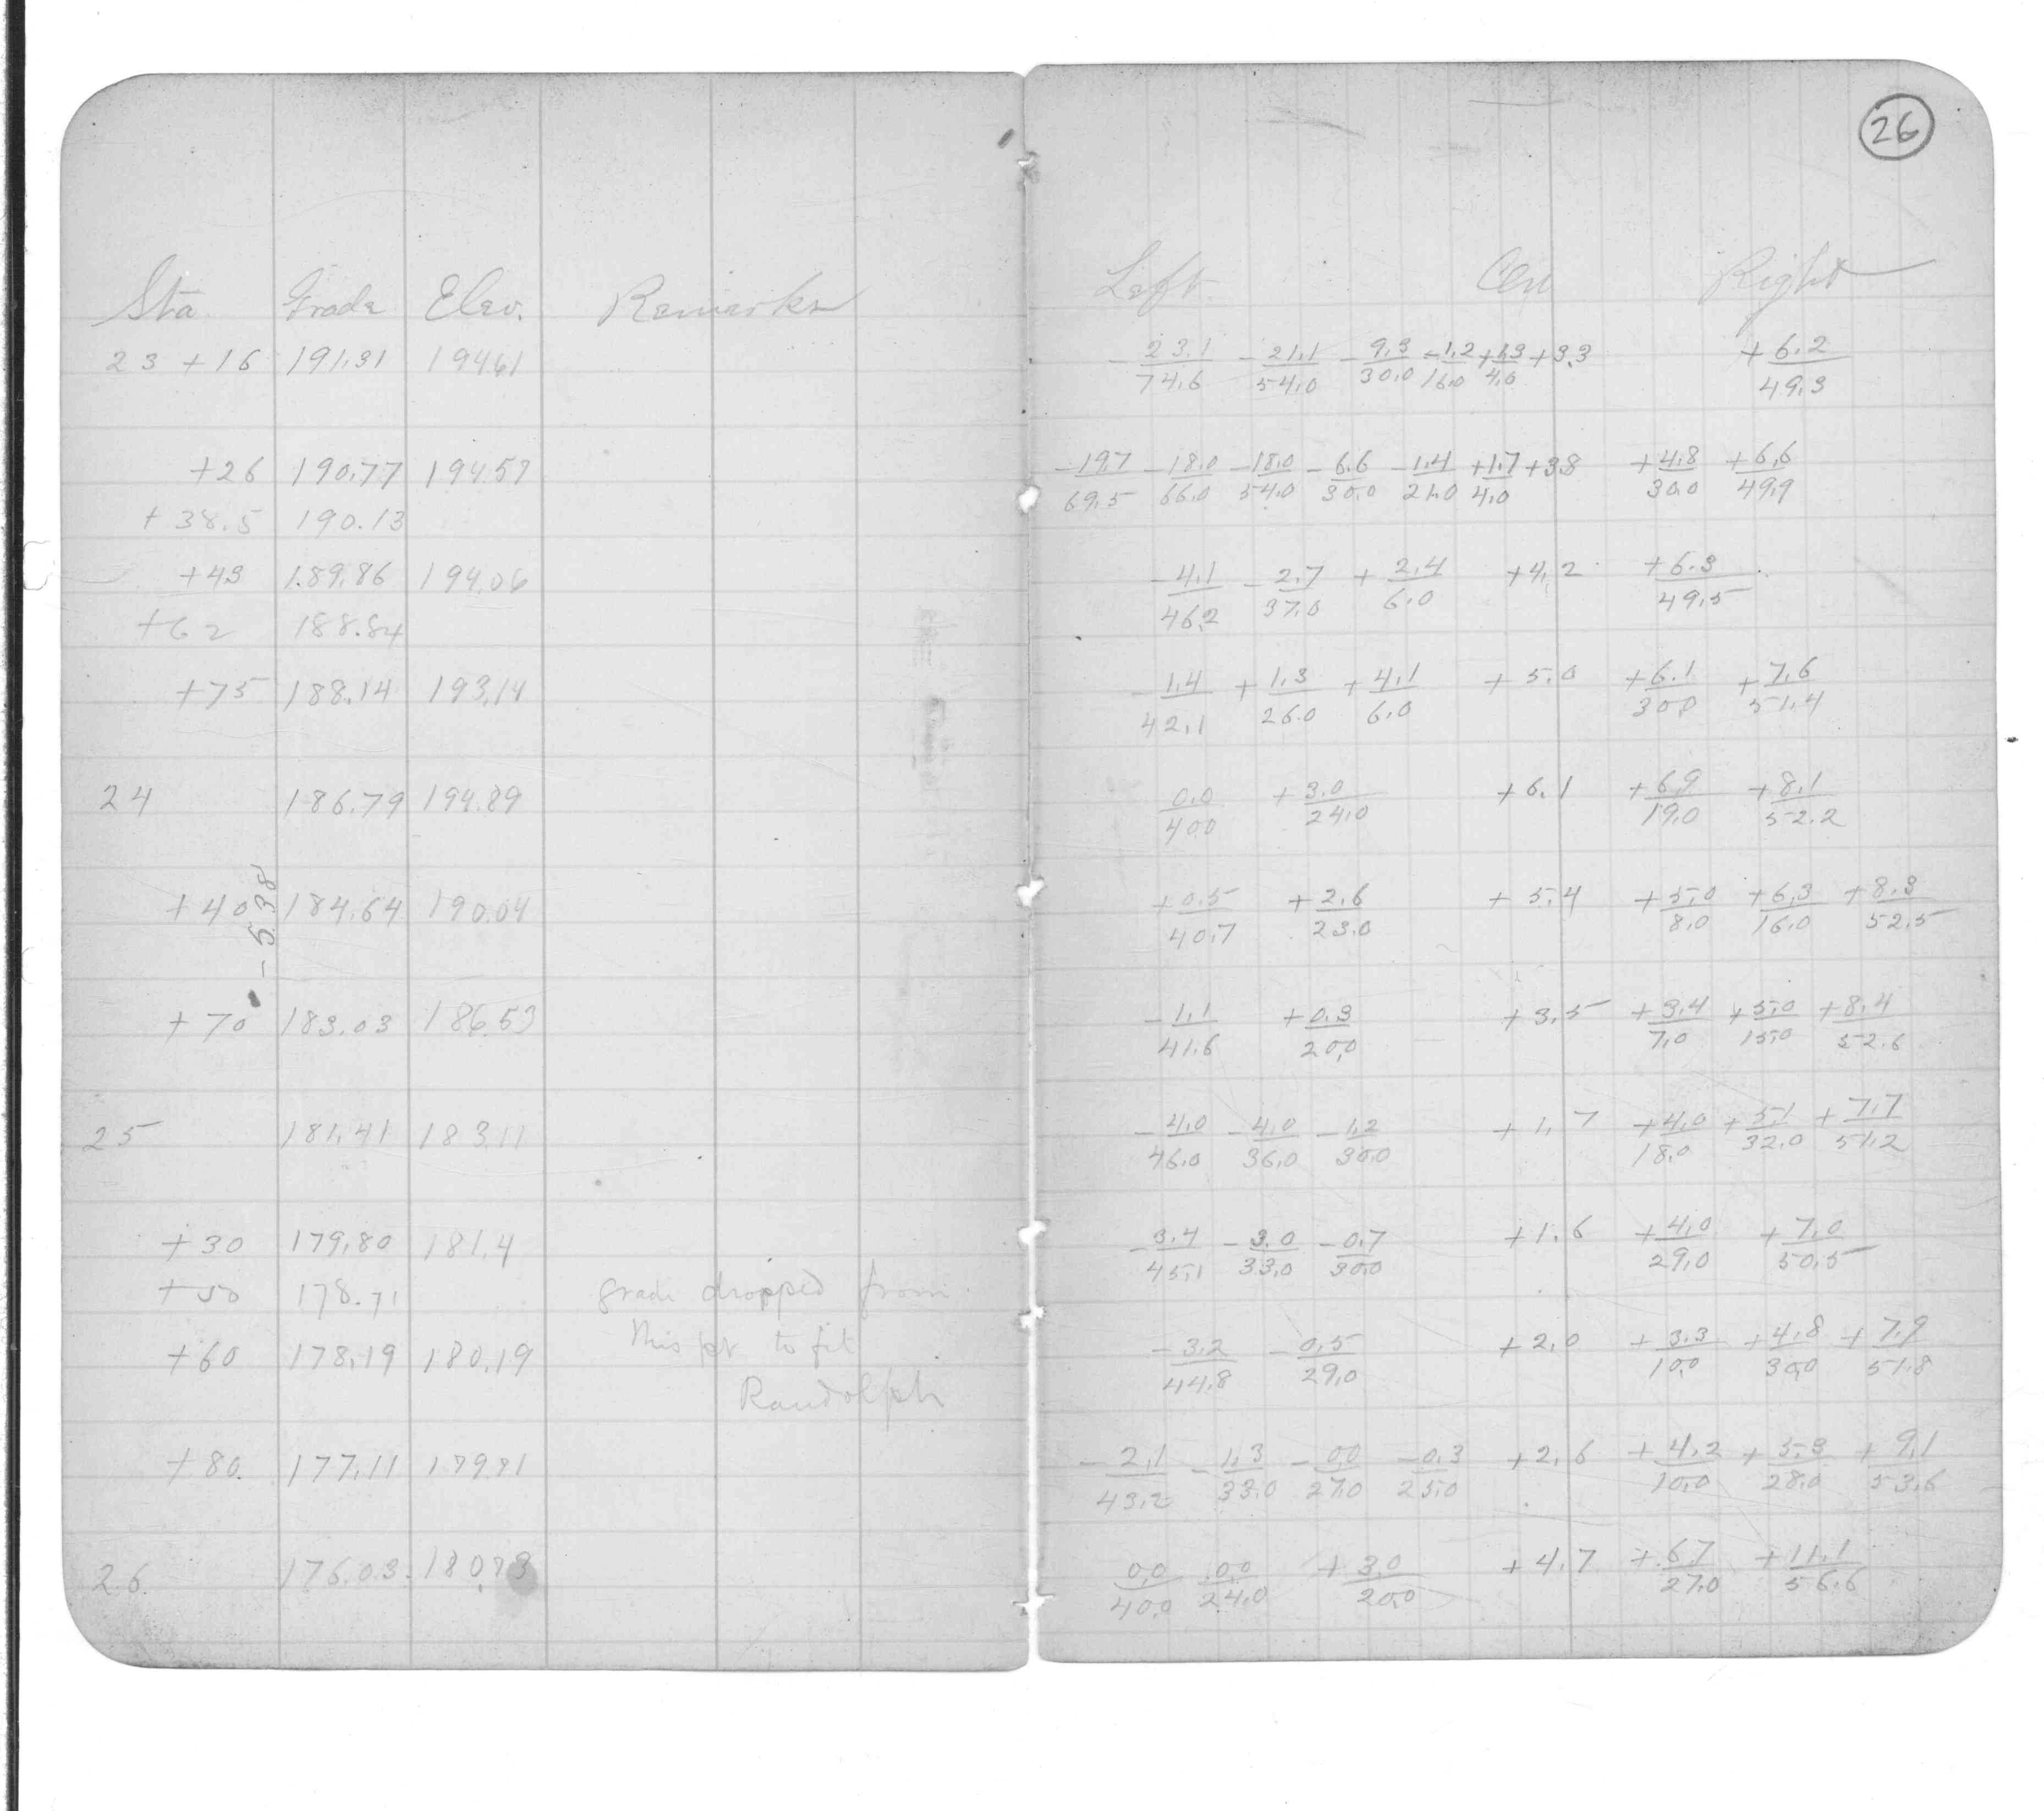 26
Sta. Grade Elev. Remarks Left Cen Right
23 +16 191.31 194.61 -23.1/74.6 -21.1/54.0 -9.3/30.0 -1.2/16.0 +1.3/4.0 +3.3 +6.2/49.3
+26 190.77 194.57 -19.7/69.5 -18.0/66.0 -18.0/54.0 -6.6/30.0 -1.4/21.0 +1.7/4.0 +3.8 +4.8/30.0 +6.6/49.9
+38.5 190.13
+43 189.86 194.06 -4.1/46.2 -2.7/37.0 +2.4/6.0 +4.2 +6.3/49.5
+62 188.84
+75 188.14 193.14 -1.4/42.1 +1.3/26.0 +4.1/6.0 +5.0 +6.1/30.0 +7.6/51.4
24 186.79 194.89 0.0/40.0 +3.0/24.0 +6.1 +6.9/19.0 +8.1/52.2
-5.38
+40 184.64 190.04 +0.5/40.7 +2.6/23.0 +5.4 +5.0/8.0 +6.3/16.0 +8.3/52.5
+70 183.03 186.53 -1.1/41.6 +0.3/20.0 +3.5 +3.4/7.0 +5.0/15.0 +8.4/52.6
25 181.41 183.11 -4.0/46.0 -4.0/36.0 -1.2/30.0 +1.7 +4.0/18.0 +5.1/32.0 +7.7/51.2
+30 179.80 181.4 -3.4/45.1 -3.0/33.0 -0.7/30.0 +1.6 +4.0/29.0 +7.0/50.5
+50 178.71 grade dropped from
this pt to fit
+60 178.19 180.19 -3.2/44.8 -0.5/29.0 +2.0 +3.3/10.0 +4.8/30.0 +7.9/51.8
Randolph
+80. 177.11 179.71 -2.1/43.2 -1.3/33.0 -0.0/27.0 -0.3/25.0 +2.6 +4.2/10.0 +5.3/28.0 +9.1/53.6
26. 176.03. 180.73 0.0/40.0 0.0/24.0 +3.0/20.0 +4.7 +6.7/27.0 +11.1/56.6